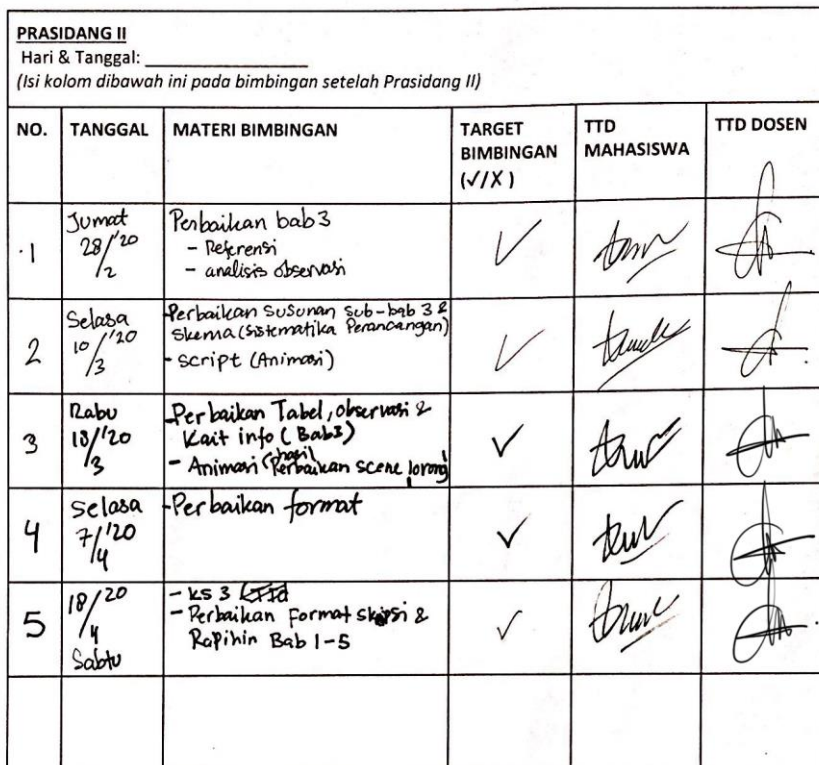 PRASIDANG II
Hari & Tanggal: ____________________
(Isi kolom dibawah ini pada bimbingan setelah Prasidang II)
NO. TANGGAL MATERI BIMBINGAN TARGET BIMBINGAN (√/X) TTD MAHASISWA TTD DOSEN
1 Jumat 28/2 '20 Perbaikan bab 3
- Referensi
- analisis observasi
✓
2 Selasa 10/3 '20 - Perbaikan Susunan Sub-bab 3 &
Skema (Sistematika Perancangan)
- Script (Animasi)
✓
3 Rabu 18/3 '20 - Perbaikan Tabel, observasi &
Kait info (Bab3)
- Animasi (hasil Perbaikan scene lorong)
✓
4 Selasa 7/4 '20 - Perbaikan format
✓
5 18/4 20 Sabtu - KS 3
- Perbaikan format skripsi &
Rapihin Bab 1-5
✓